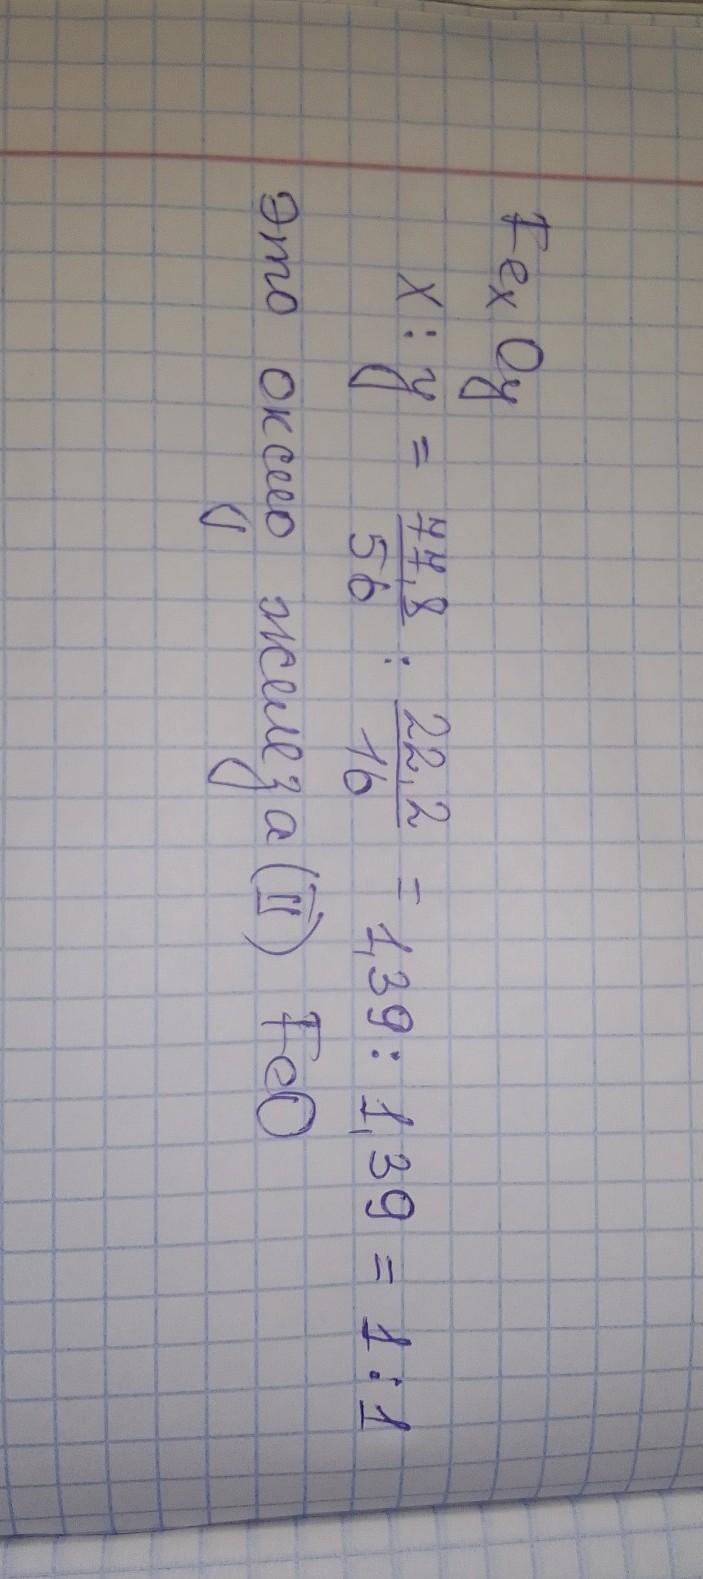 FexOy
x : y = 77,8/56 : 22,2/16 = 1,39 : 1,39 = 1 : 1
это оксид железа (II) FeO